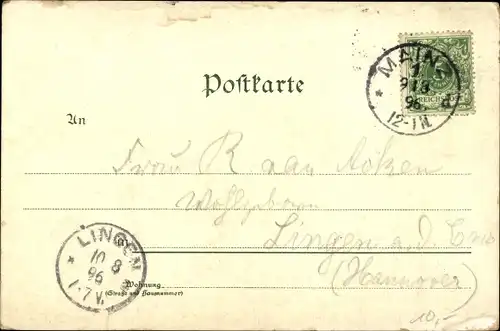 Postkarte
MAINZ
1
9 8
96
12-1N.
REICHSPOST
An
Frau R van Acken
Wohlgeboren
Lingen a. d. Ems
(Hannover)
LINGEN
10 8
96
1-7V.
Wohnung
(Straße und Hausnummer)
10,-